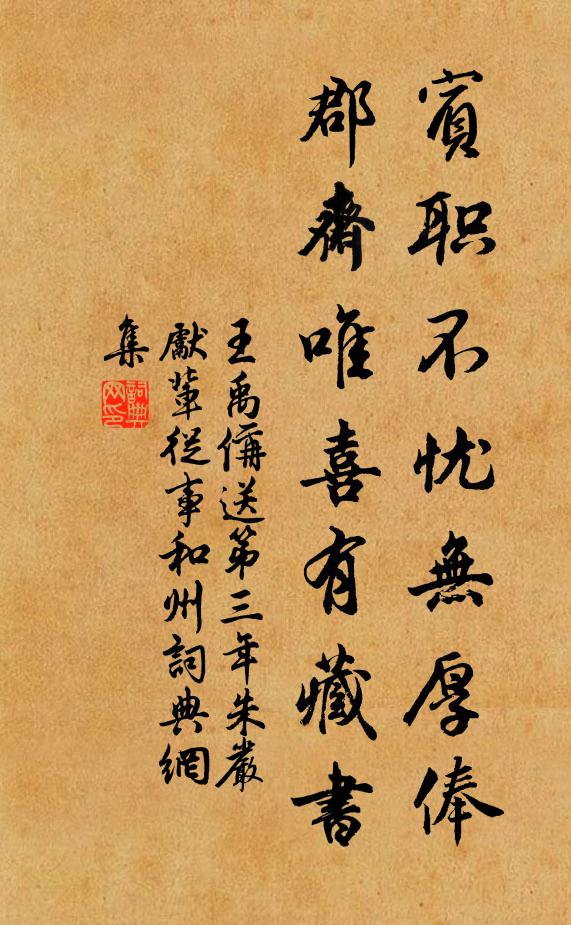 賓职不忧無厚俸
郡齋唯喜有藏書
王禹偁送第三年朱嚴
獻輩從事和州詞典網
集
詞典网印